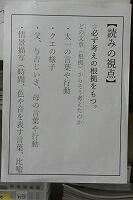 【読みの視点】
☆必ず考えの根拠をもつ。
どの文章(根拠)からそう考えたのか
・太一の言葉や行動
・クエの様子
・父、与吉じいさ、母の言葉や行動
・情景描写(時間、色や音を表す言葉、比喩)